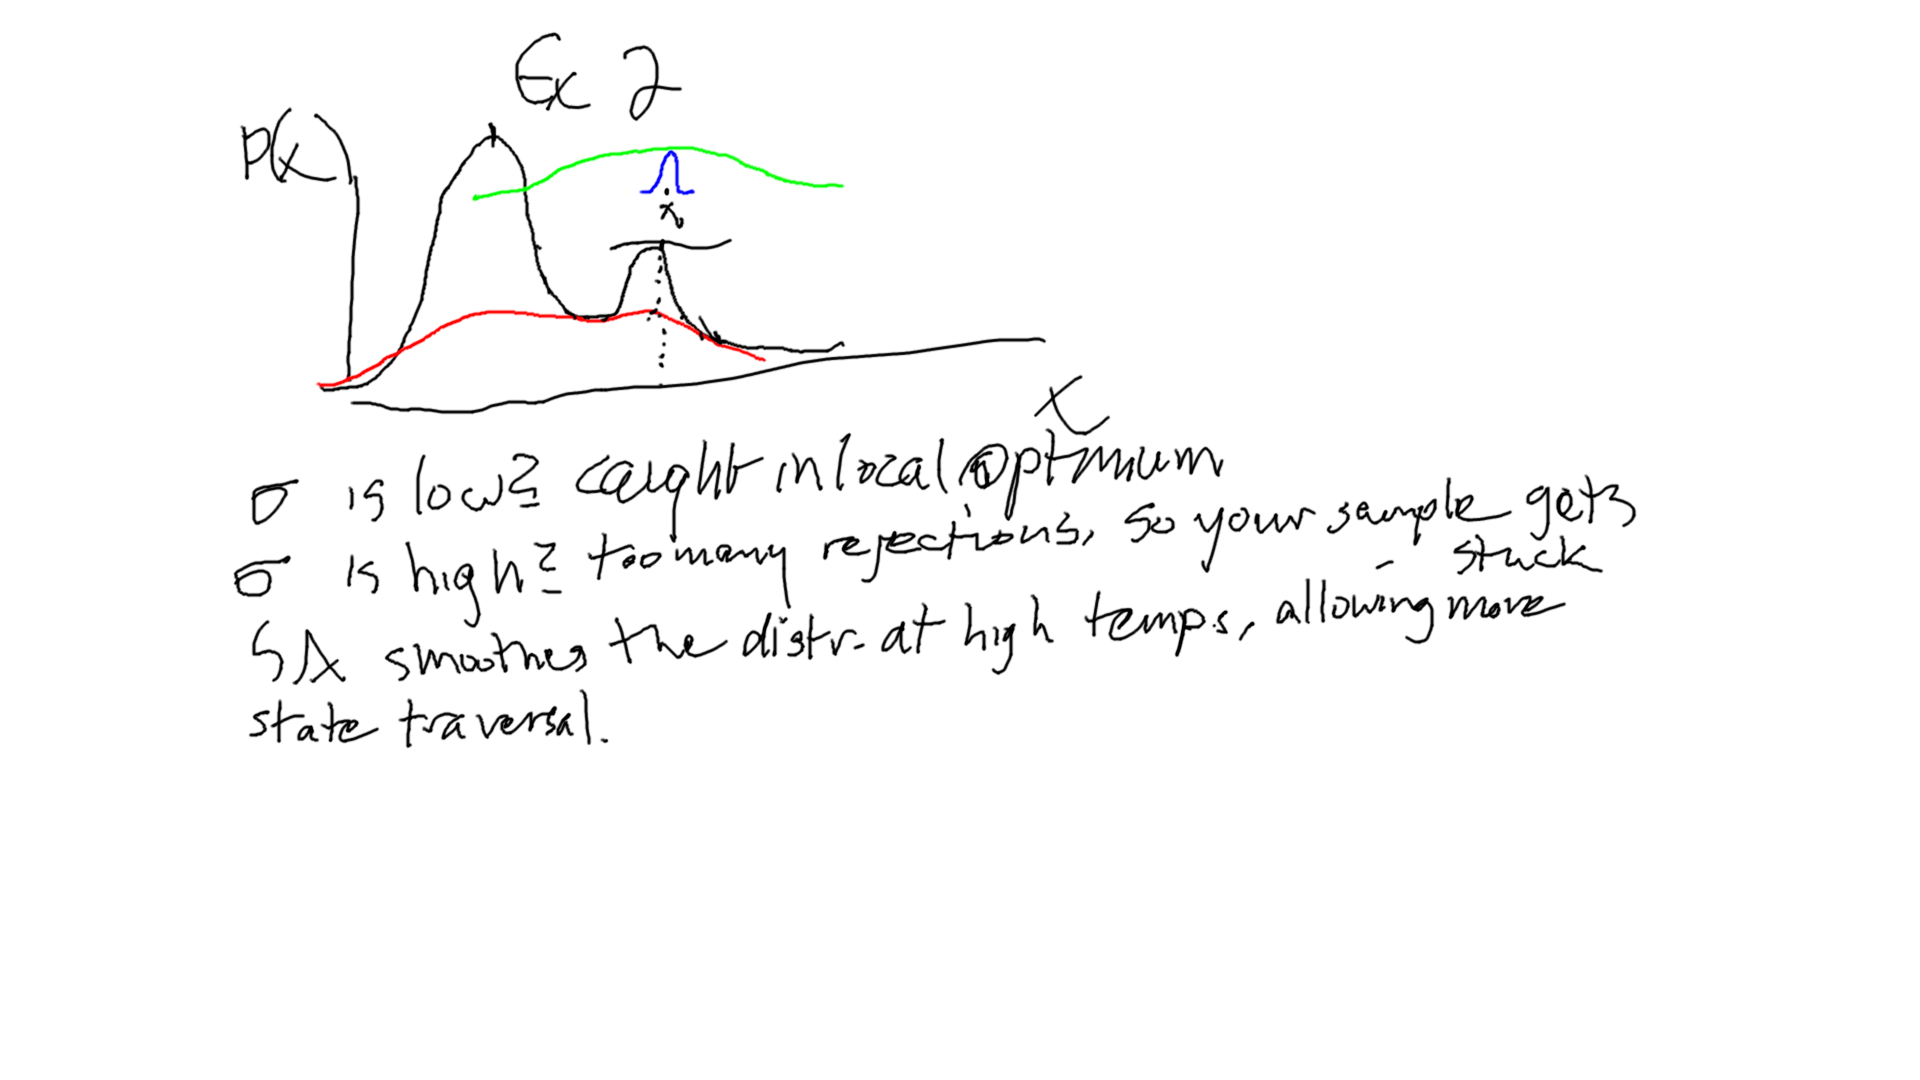 Ex 2
P(x)
x₀
x
σ is low? caught in local optimum
σ is high? too many rejections, so your sample gets
stuck
SA smoothes the distr. at high temps, allowing more
state traversal.